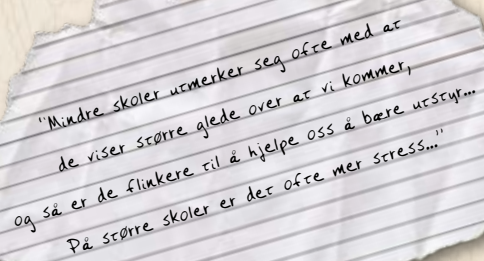 "Mindre skoler utmerker seg ofte med at
de viser større glede over at vi kommer,
og så er de flinkere til å hjelpe oss å bære utstyr...
På større skoler er det ofte mer stress..."